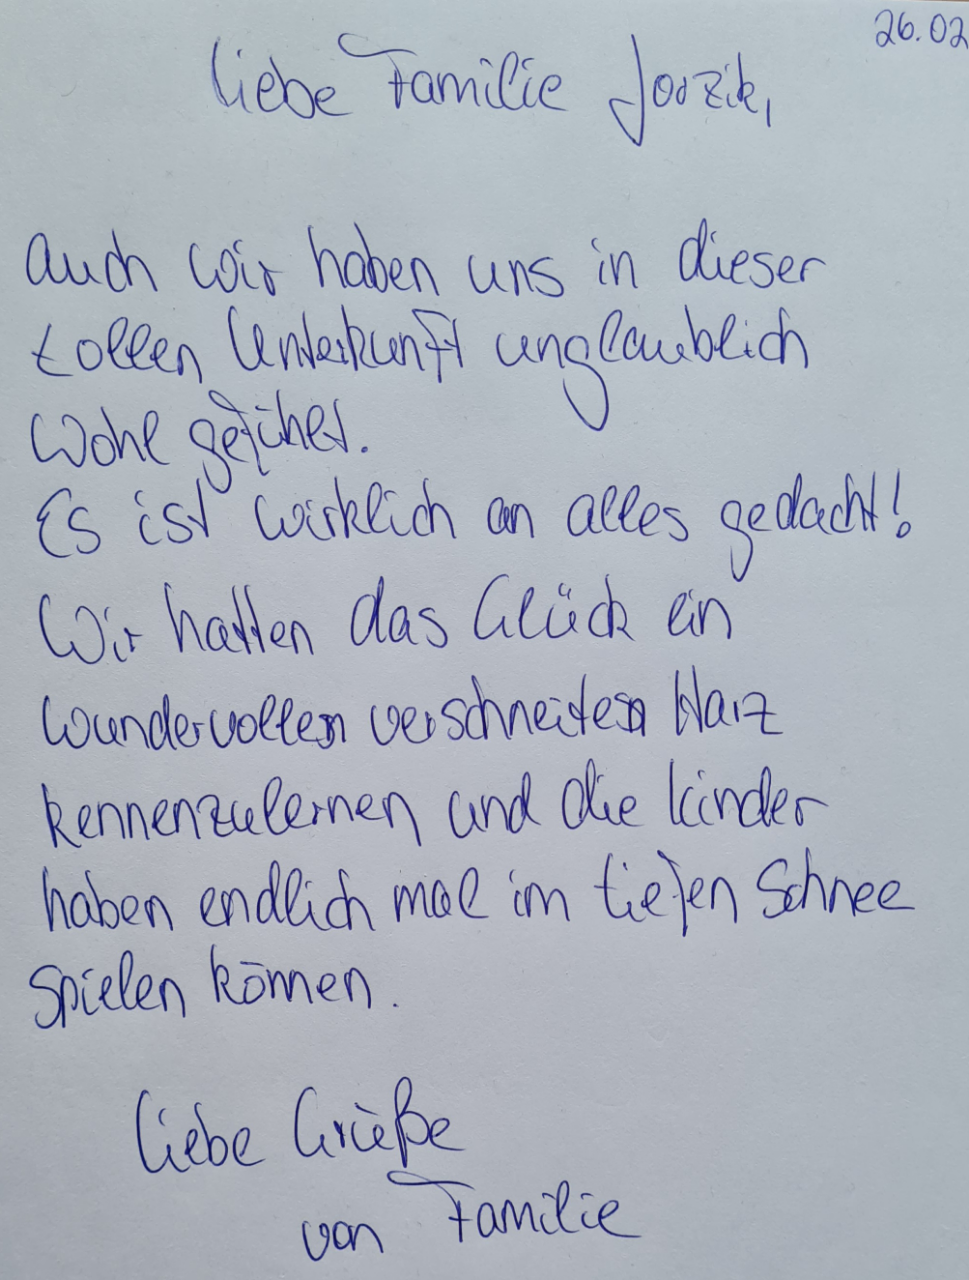 26.02
Liebe Familie Jorzik,
auch wir haben uns in dieser
tollen Unterkunft unglaublich
wohl gefühlt.
Es ist wirklich an alles gedacht!
Wir hatten das Glück ein
wundervollen verschneiten Harz
kennenzulernen und die Kinder
haben endlich mal im tiefen Schnee
spielen können.
Liebe Grüße
von Familie